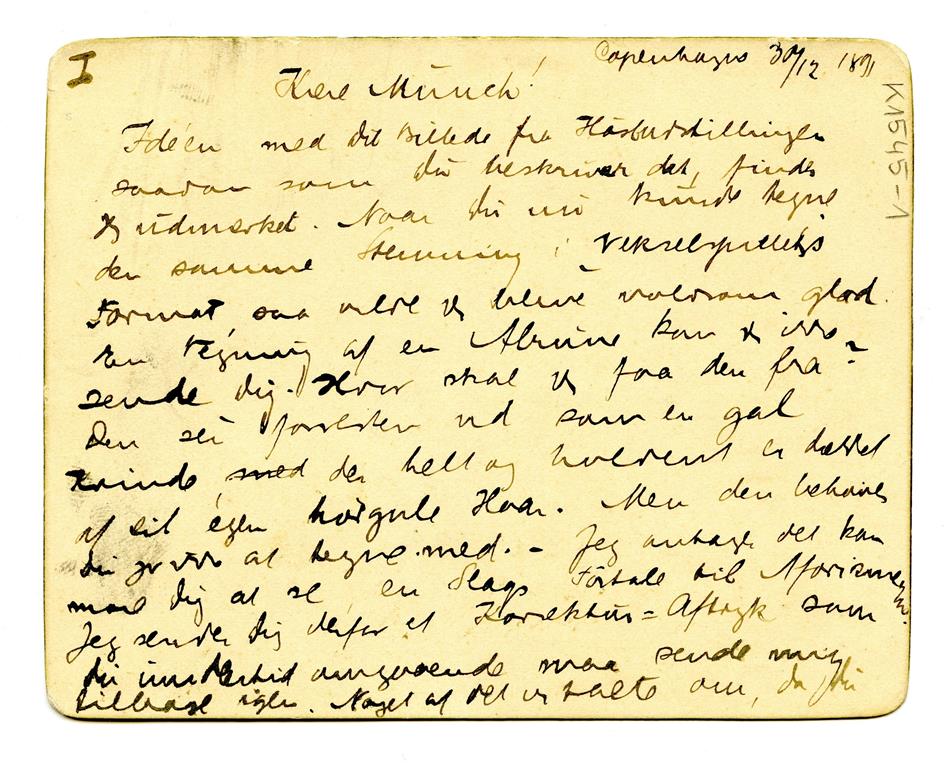 I
Copenhagen 30/12 1891
K1545-1
Kære Münch!
Idéen med dit Billede fra Høstudstillingen
saadan som du beskriver det, finder
jeg udmærket. Naar du nu kunde tegne
den samme Stemning i
Format, saa vilde jeg blive voldsom glad.
En Tegning af en Alrune kan jeg ikke
sende dig. Hvor skal jeg faa den fra?
Den sér forresten ud som en gal
Kvinde, med der helt og holdent er dækket
af sit egen hørgule Haar. Men den behøver
du jo ikke at tegne med. – Jeg antager det kan
more dig at se en Slags Fortale til Aforismerne.
Jeg sender dig derfor et Korrektur=Aftryk som
du imidlertid omgaaende maa sende mig
tilbage igen. Noget af det vi talte om, da du